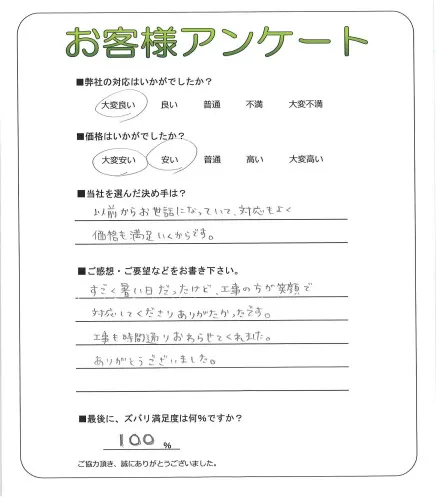 お客様アンケート
■弊社の対応はいかがでしたか?
大変良い 良い 普通 不満 大変不満
■価格はいかがでしたか?
大変安い 安い 普通 高い 大変高い
■当社を選んだ決め手は?
以前からお世話になっていて、対応もよく
価格も満足いくからです。
■ご感想・ご要望などをお書き下さい。
すごく暑い日だったけど、工事の方が笑顔で
対応してくださりありがたかったです。
工事も時間通りおわらせてくれました。
ありがとうございました。
■最後に、ズバリ満足度は何%ですか?
100 %
ご協力頂き、誠にありがとうございました。